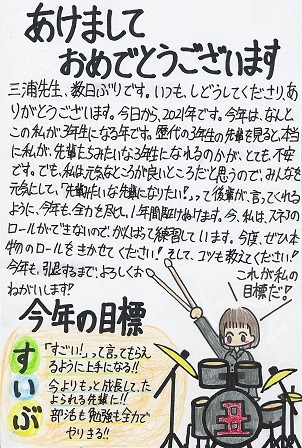 あけまして
おめでとうございます
三浦先生、数日ぶりです。いつも、しどうしてくださり、あ
りがとうございます。今日から、2021年です。今年は、なんと、
この私が、3年生になる年です。歴代の3年生の先輩を見ると、本当
に私が、先輩たちみたいな3年生になれるのかが、とても、不安
です。でも、私は元気なところが良いところだと思うので、みんなを
元気にして、「先輩みたいな先輩になりたい!」って後輩が、言ってくれる
ように、今年も、全力を尽くし、1年間駆けぬけます。今、私は、スネアの
ロールができないので、がんばって練習しています。今度、ぜひ本
物のロールをきかせてください!そして、コツも教えてください!
今年も、引退するまで、よろしくお
ねがいします!
これが私の
目標だ!
今年の目標
す 「すごい!」って言ってもらえ
るように上手になる!!
い 今よりもっと成長して、た
よられる先輩に!!
ぶ 部活も勉強も全力で
やりきる!!
丑